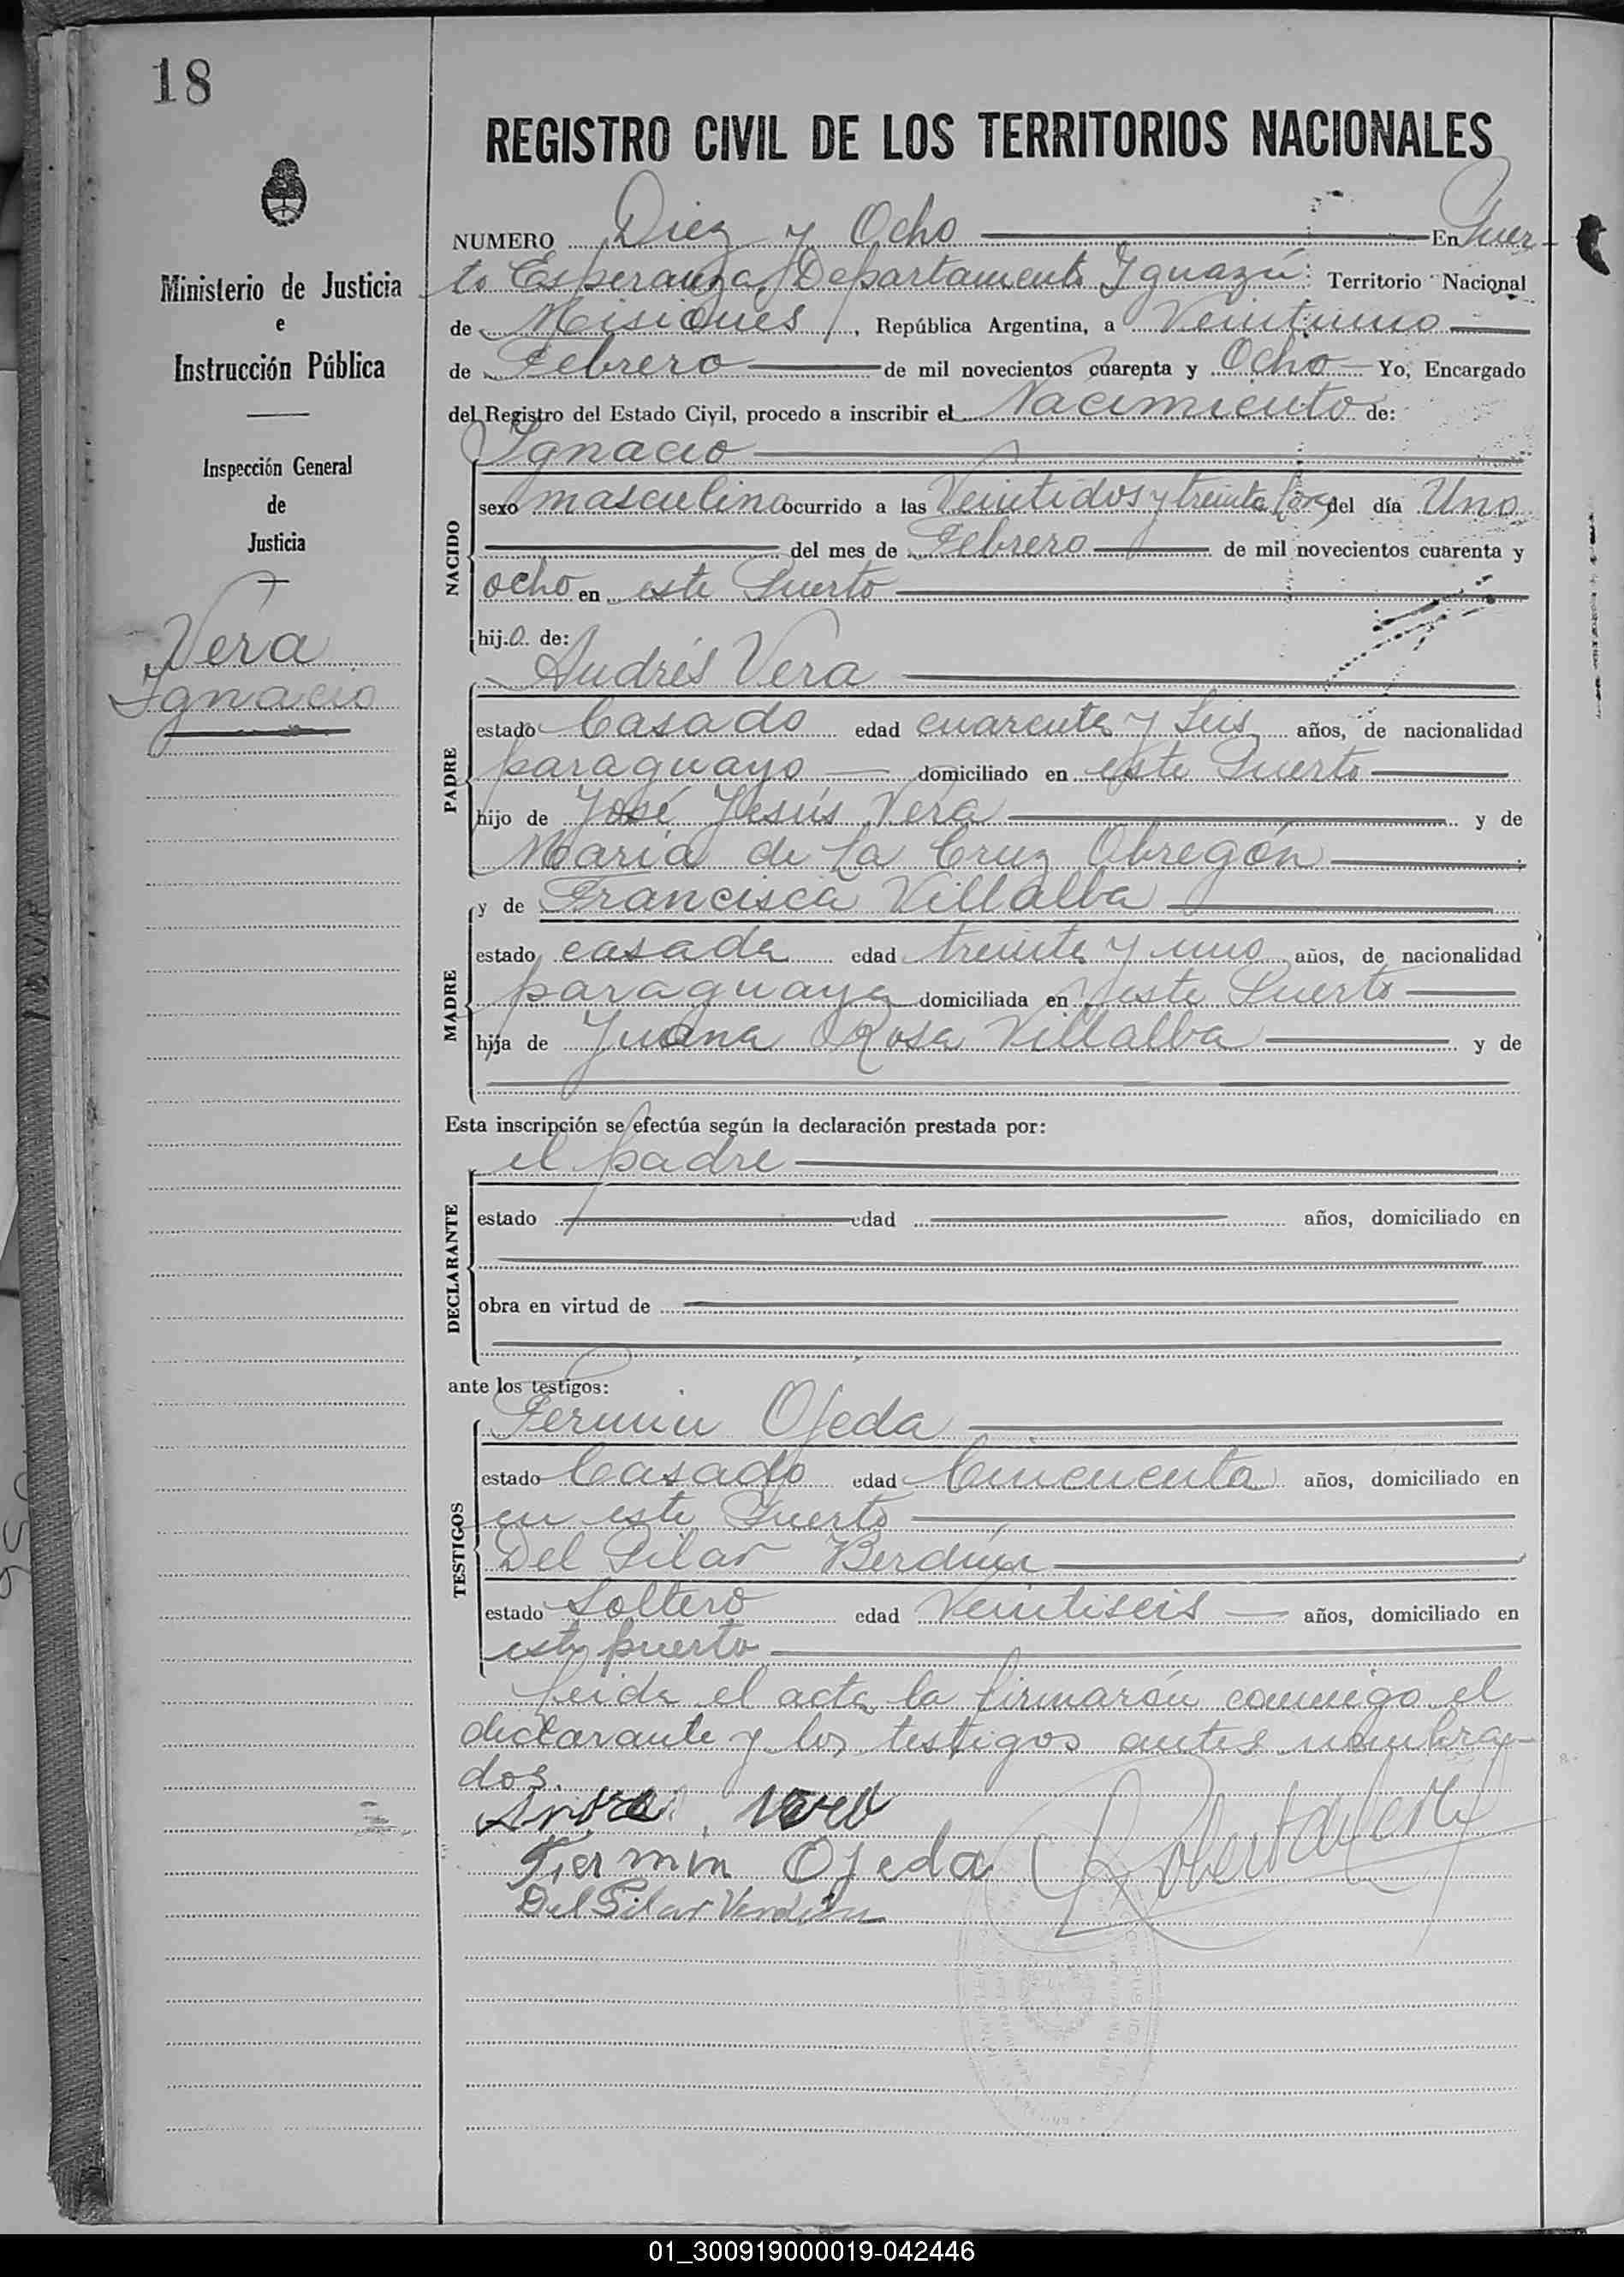 18
Ministerio de Justicia
e
Instrucción Pública
Inspección General
de
Justicia
Vera
Ignacio
REGISTRO CIVIL DE LOS TERRITORIOS NACIONALES
NUMERO Diez y Ocho En Puer-
to Esperanza, Departamento Iguazú: Territorio Nacional
de Misiones, República Argentina, a Veintiuno
de Febrero de mil novecientos cuarenta y Ocho Yo, Encargado
del Registro del Estado Civil, procedo a inscribir el Nacimiento de:
Ignacio
NACIDO
sexo masculino ocurrido a las Veintidos y treinta horas del día Uno
del mes de Febrero de mil novecientos cuarenta y
ocho en este Puerto
hijo de:
Andrés Vera
PADRE
estado Casado edad cuarenta y Seis años, de nacionalidad
paraguayo domiciliado en este Puerto
hijo de José Jesús Vera y de
María de la Cruz Obregón
y de Francisca Villalba
MADRE
estado casada edad treinta y uno años, de nacionalidad
paraguaya domiciliada en este Puerto
hija de Juana Rosa Villalba y de
Esta inscripción se efectúa según la declaración prestada por:
el padre
DECLARANTE
estado edad años, domiciliado en
obra en virtud de
ante los testigos:
Fermin Ojeda
TESTIGOS
estado Casado edad Cincuenta años, domiciliado en
en este Puerto
Del Pilar Berdún
estado Soltero edad Veintiseis años, domiciliado en
este puerto
Leida el acta la firmarón conmigo el
declarante y los testigos antes nombra-
dos.
Andres Vera
Fiermin Ojeda
Del Pilar Verdún
01_300919000019-042446